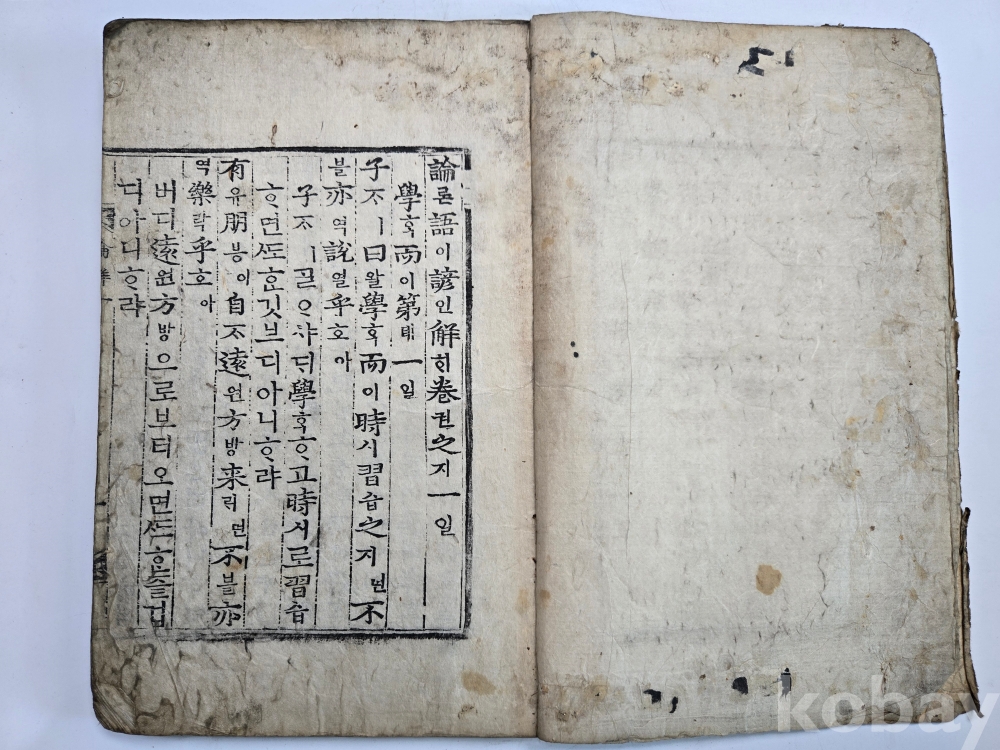 論론語어諺언解ᄒᆡ卷권之지一일
學ᄒᆞᆨ而이第뎨一일
子ᄌᆞㅣ曰왈學ᄒᆞᆨ而이時시習습之지면不
블亦역說열乎호아
子ᄌᆞㅣᄀᆞᆯᄋᆞ샤ᄃᆡ學ᄒᆞᆨᄒᆞ고時시로習습
ᄒᆞ면ᄯᅩᄒᆞᆫ깃브디아니ᄒᆞ랴
有유朋붕이自ᄌᆞ遠원方방来ᄅᆡ면不블亦
역樂락乎호아
버디遠원方방으로브터오면ᄯᅩᄒᆞᆫ즐겁
디아니ᄒᆞ랴
kobay